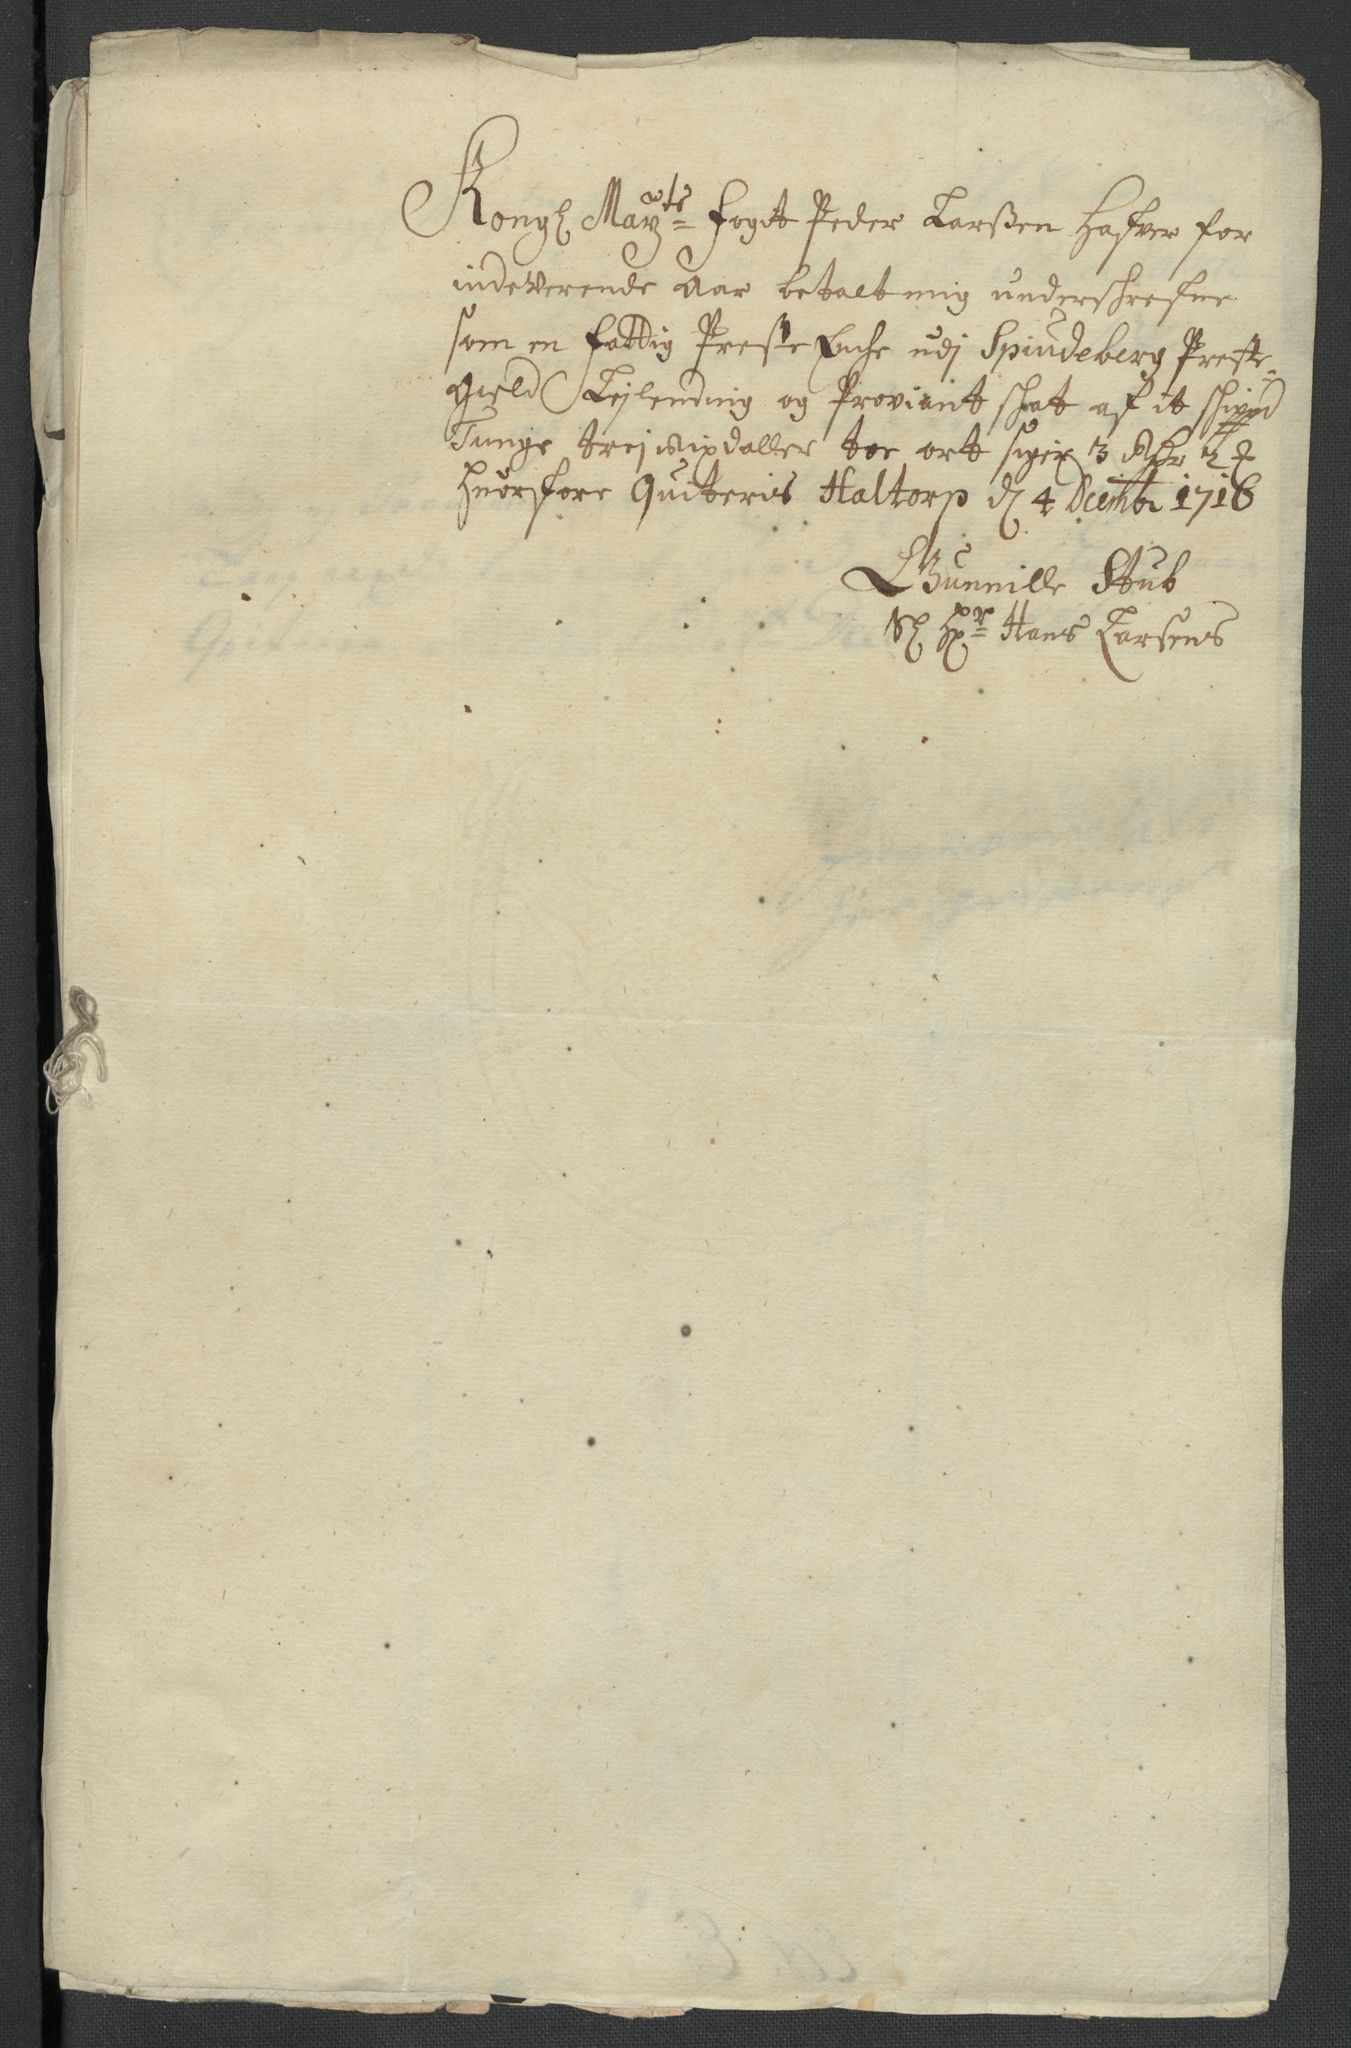 Kongl Mayts fogit Peder Larßen hafver for
indeVerende Aar betalt mig underschrefne
som en fattig Preste Enche udj Spiudeberg Preste
gield Lejlending og Proviant schat af it schippd
Tunge trej Rixdaller toe ort siger 3 Rdr 2
huorfore Quiteris Haltorp d 4 Decemb: 1716
Gunnille Stub
Sl Hr Hans Larsens